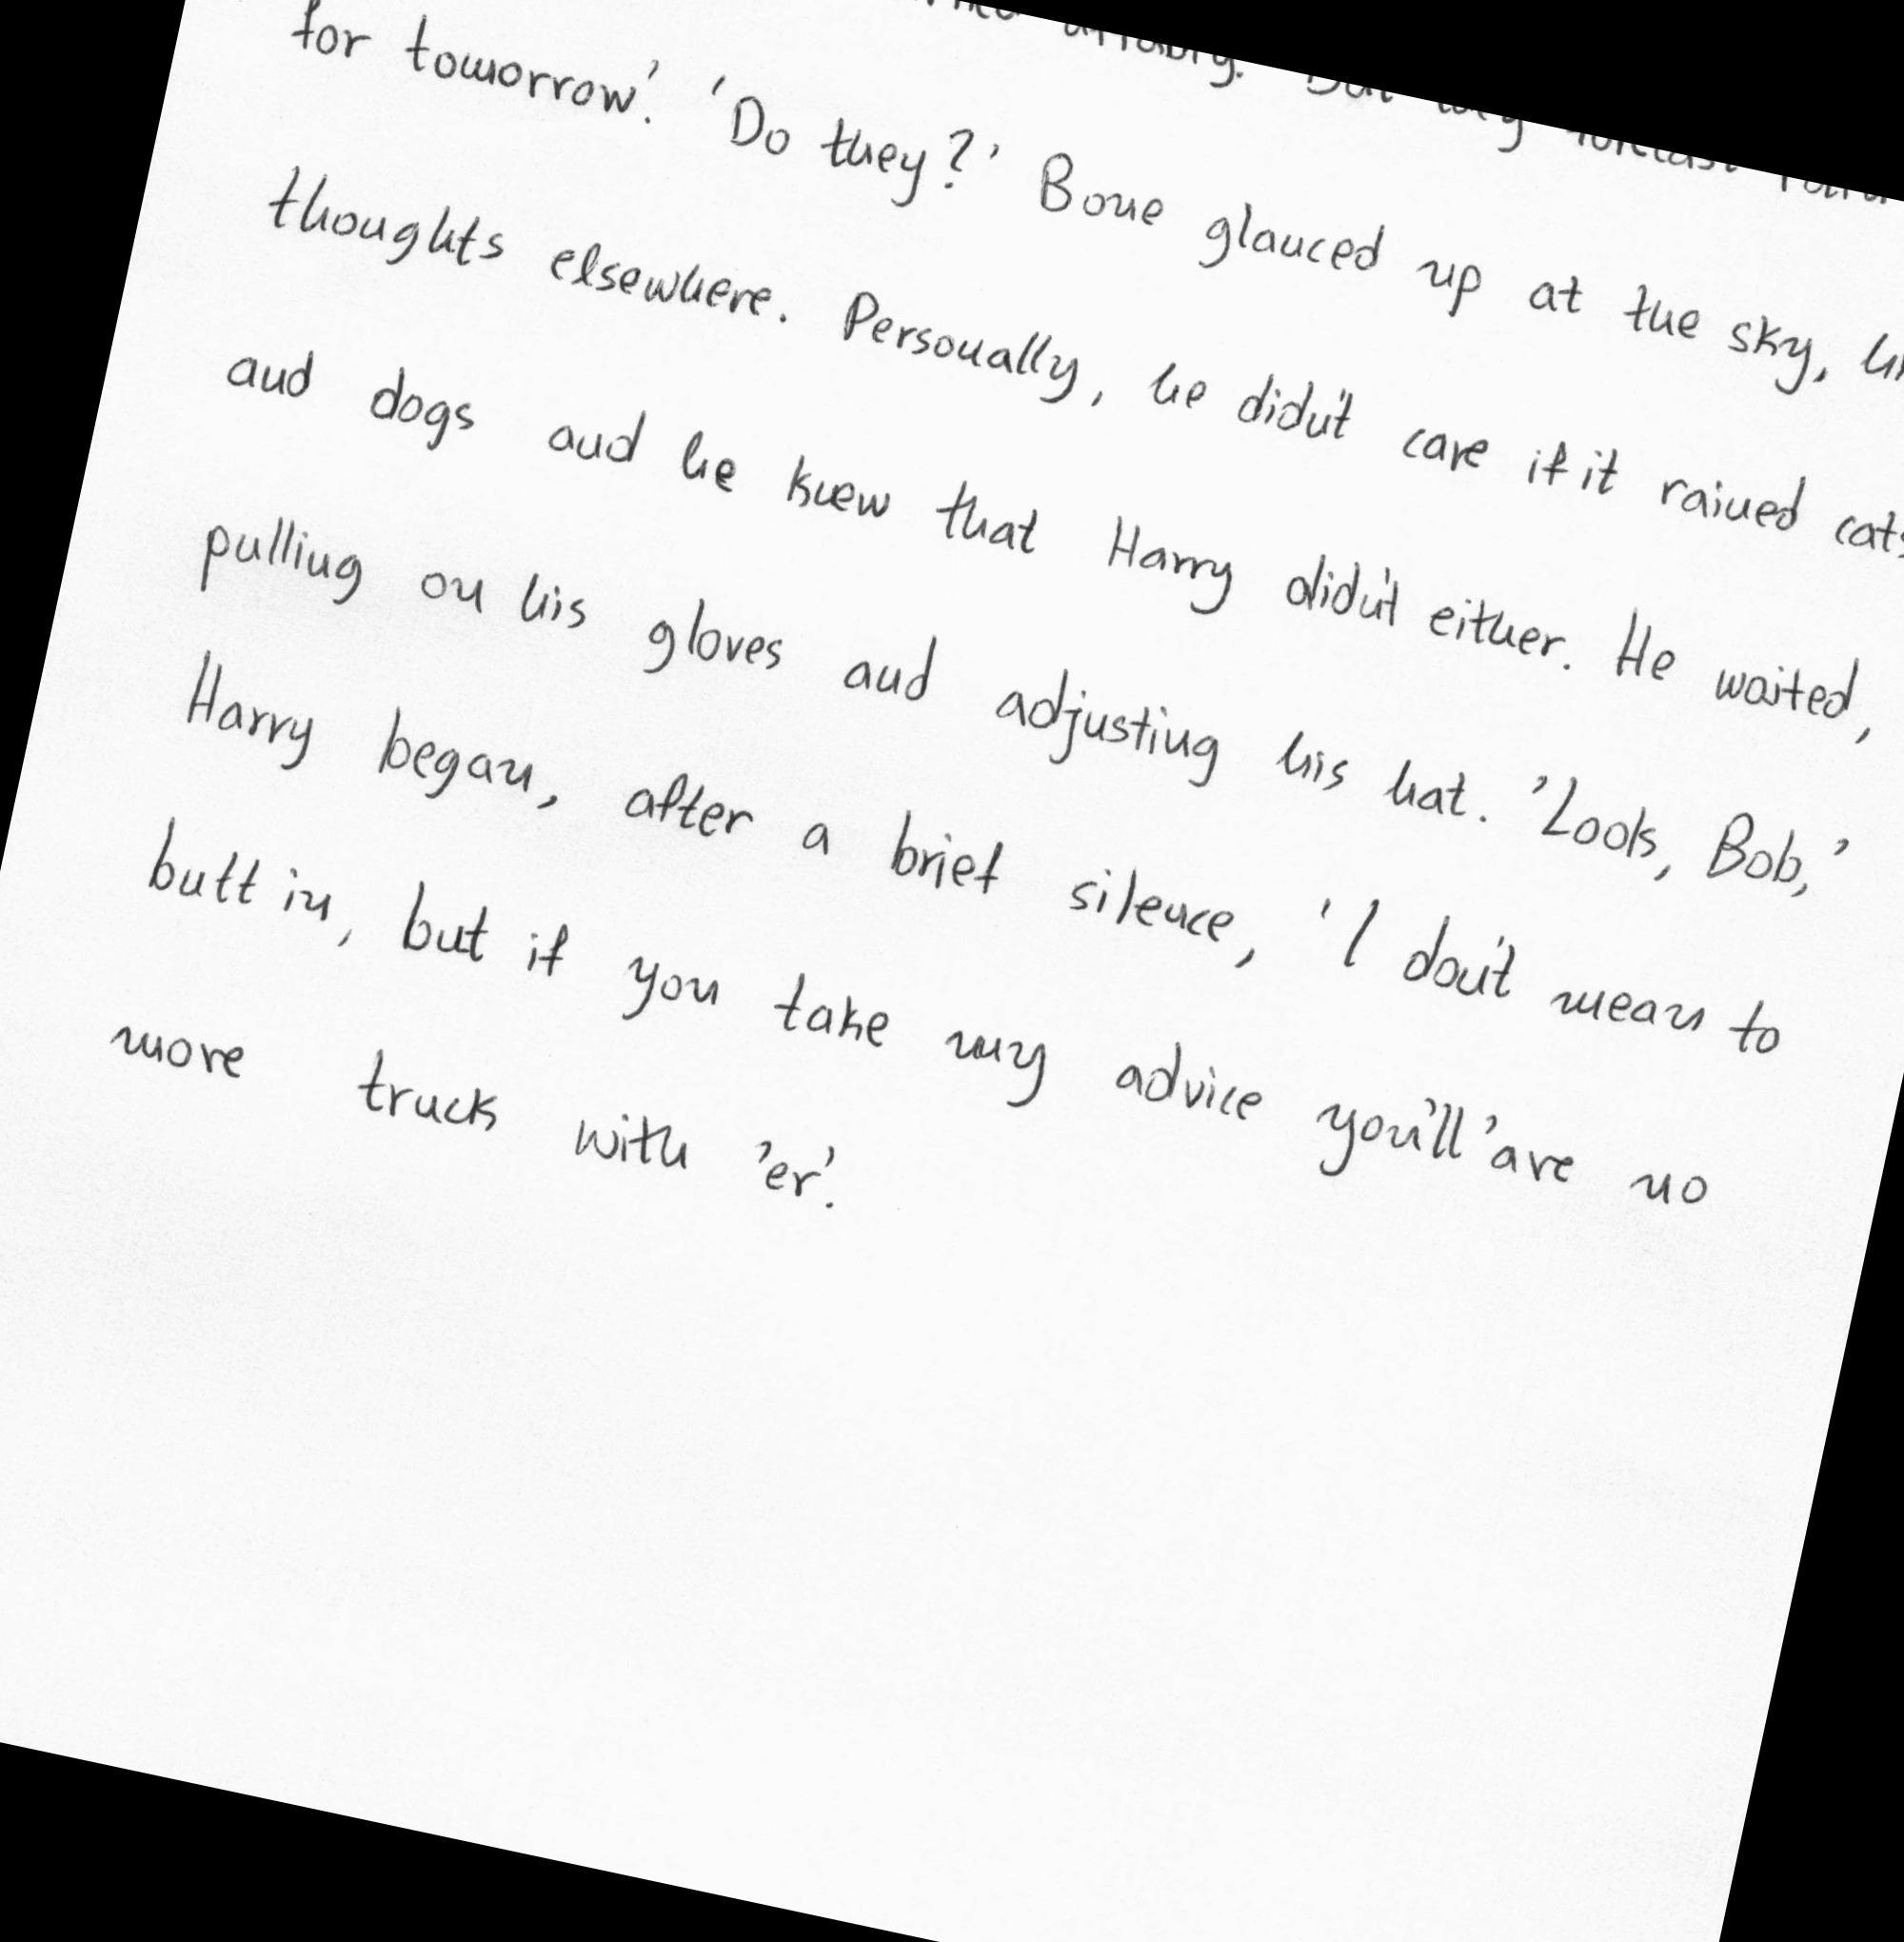 affably. But they forecast rain
for tomorrow'. 'Do they?' Bone glanced up at the sky,
thoughts elsewhere. Personally, he didn't care if it rained cats
and dogs and he knew that Harry didn't either. He waited,
pulling on his gloves and adjusting his hat. 'Look, Bob,'
Harry began, after a brief silence, 'I don't mean to
butt in, but if you take my advice you'll 'are no
more truck with 'er'.